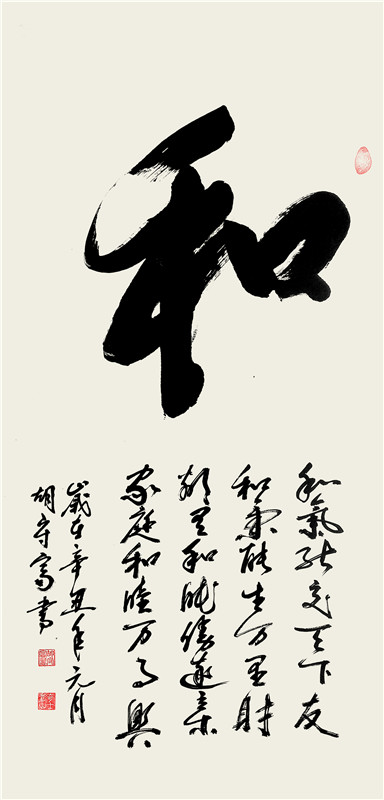 和
和氣能交天下友
和氣能生万里財
鄰里和睦勝遠亲
家庭和睦万事興
歲在辛丑年元月
胡守富書